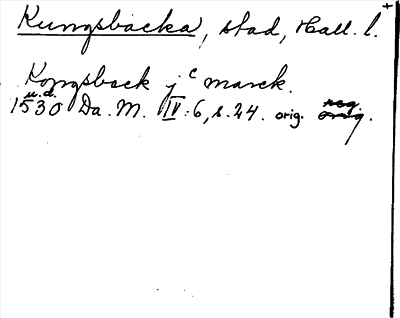 Kungsbacka, stad, Hall. l. +
Kongsback j c marck.
u.d.
1530 Da. M. IV:6, s. 24. orig. reg.